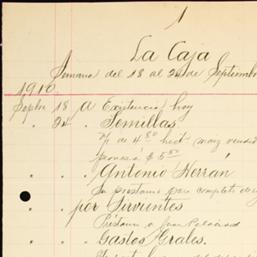 1
La Caja
Semana del 18 al 24 de Septiembr
1910.
Sepbre 18 A Existencia hoy
" 24 " Semillas
m/v de 4 80 hect (maiz vendid
" " " Antonio Herrán
Su prestamo para completo de
" " " por Sirvientes
Préstamo a Juan
" " " Gastos Grales.